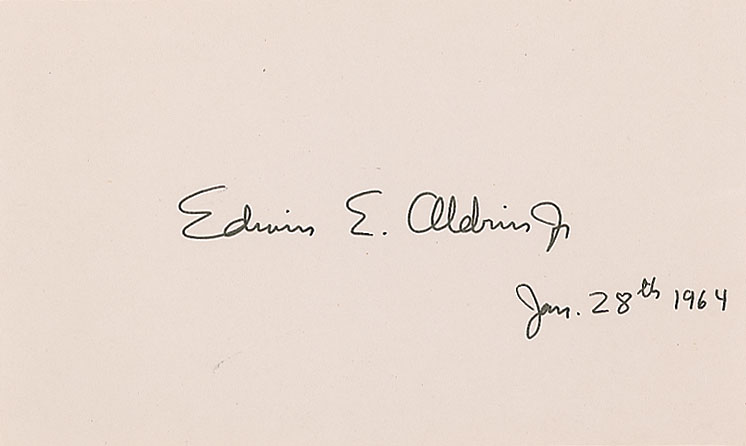 Edwin E. Aldrin Jr
Jan. 28th 1964